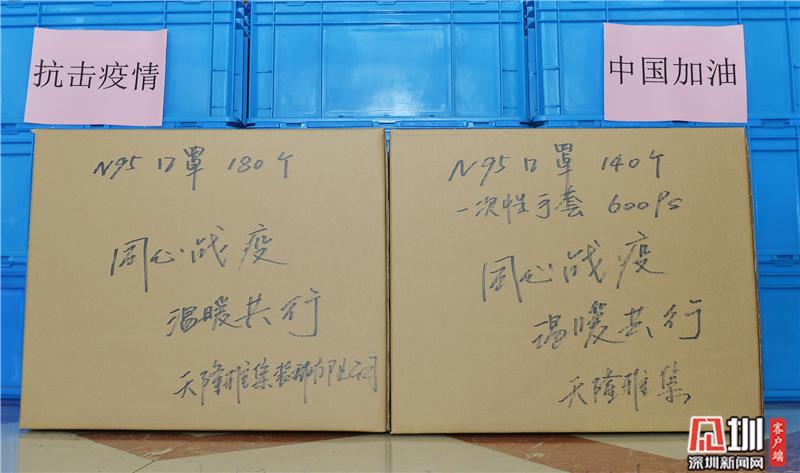 抗击疫情
中国加油
N95 口罩 180个
同心战疫
温暖共行
天隆雅集装饰有限公司
N95 口罩 140个
一次性手套 600Ps
同心战疫
温暖共行
天隆雅集
深圳
深圳新闻网
客户端